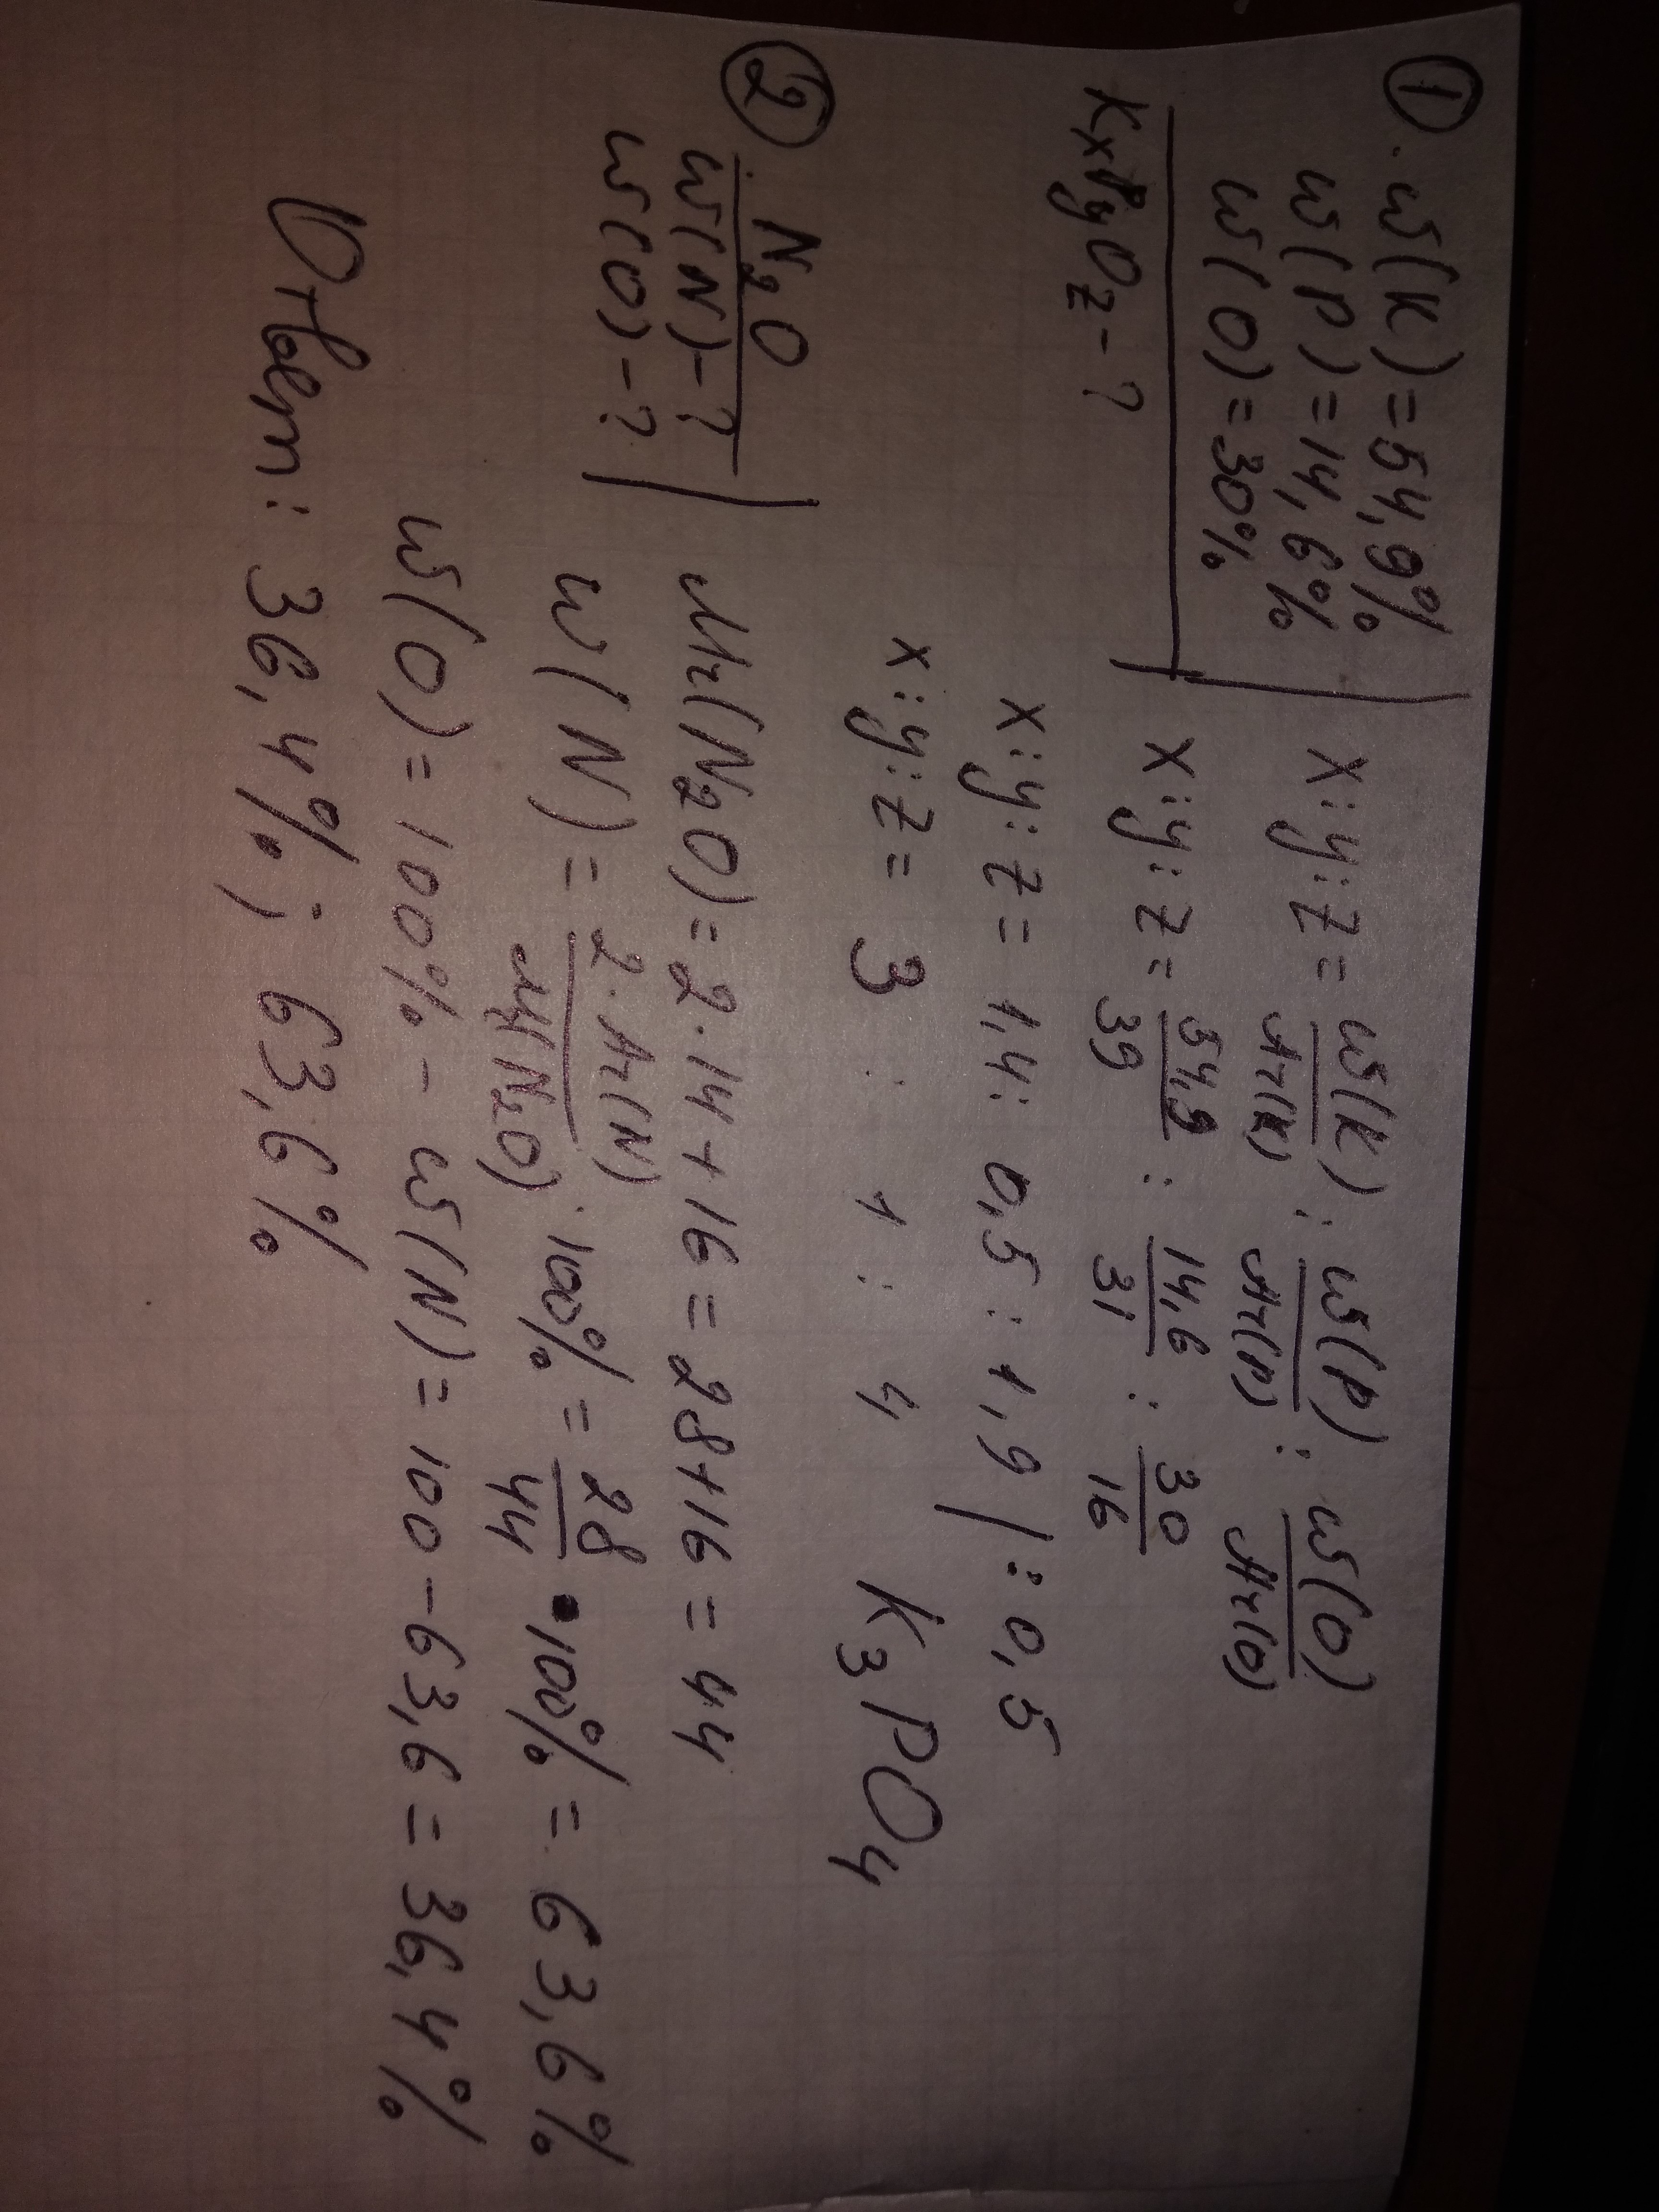 ① w(K)=54,9%
w(P)=14,6%
w(O)=30%
KxPyOz-?
x:y:z = w(K)/Ar(K) : w(P)/Ar(P) : w(O)/Ar(O)
x:y:z = 54,9/39 : 14,6/31 : 30/16
x:y:z = 1,4 : 0,5 : 1,9 | : 0,5
x:y:z = 3 : 1 : 4 K₃PO₄
② N₂O
w(N)-?
w(O)-?
Mr(N₂O) = 2·14+16 = 28+16 = 44
w(N) = 2·Ar(N)/Mr(N₂O) · 100% = 28/44 • 100% = 63,6%
w(O) = 100% - w(N) = 100-63,6 = 36,4%
Ответ: 36,4%; 63,6%